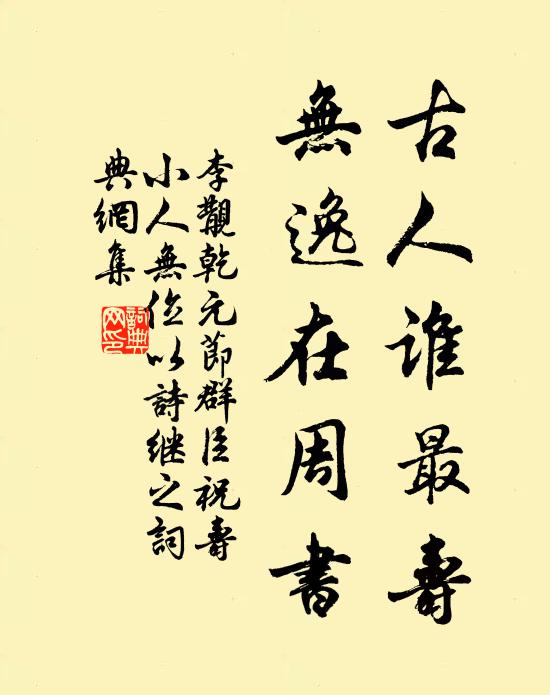 古人誰最壽
無逸在周書
李覯乾元節群臣祝壽
小人無位以詩继之詞
典網集
詞典
网印